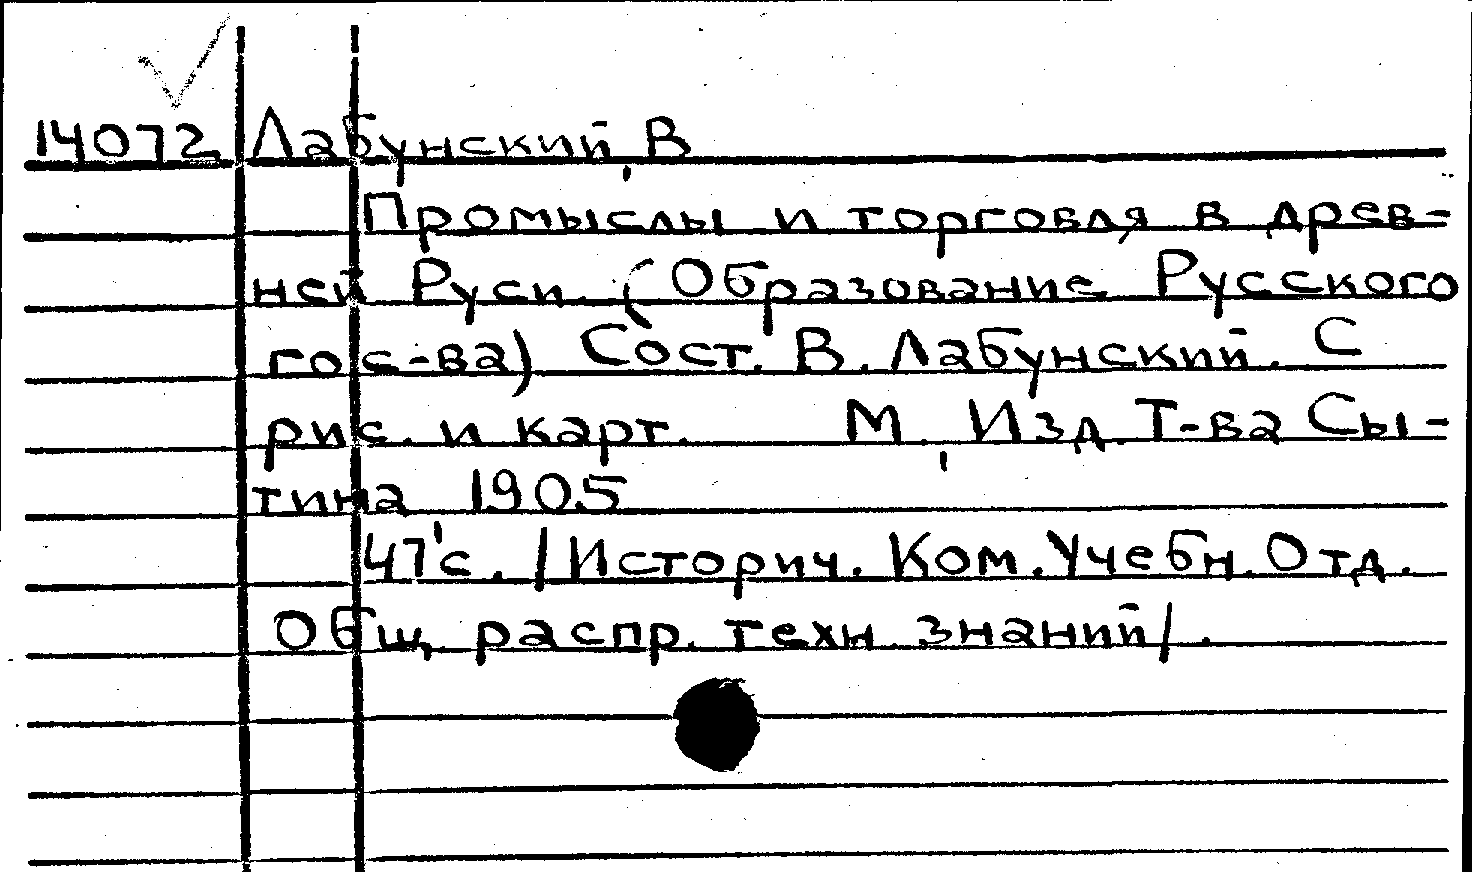 14072 Лабунский, В
Промыслы и торговля в древ-
ней Руси. (Образование Русского
гос-ва) Сост. В. Лабунский. С
рис. и карт. М., Изд. Т-ва Сы-
тина 1905
47 с. /Историч. Ком. Учебн. Отд.
Общ. распр. техн. знаний/.